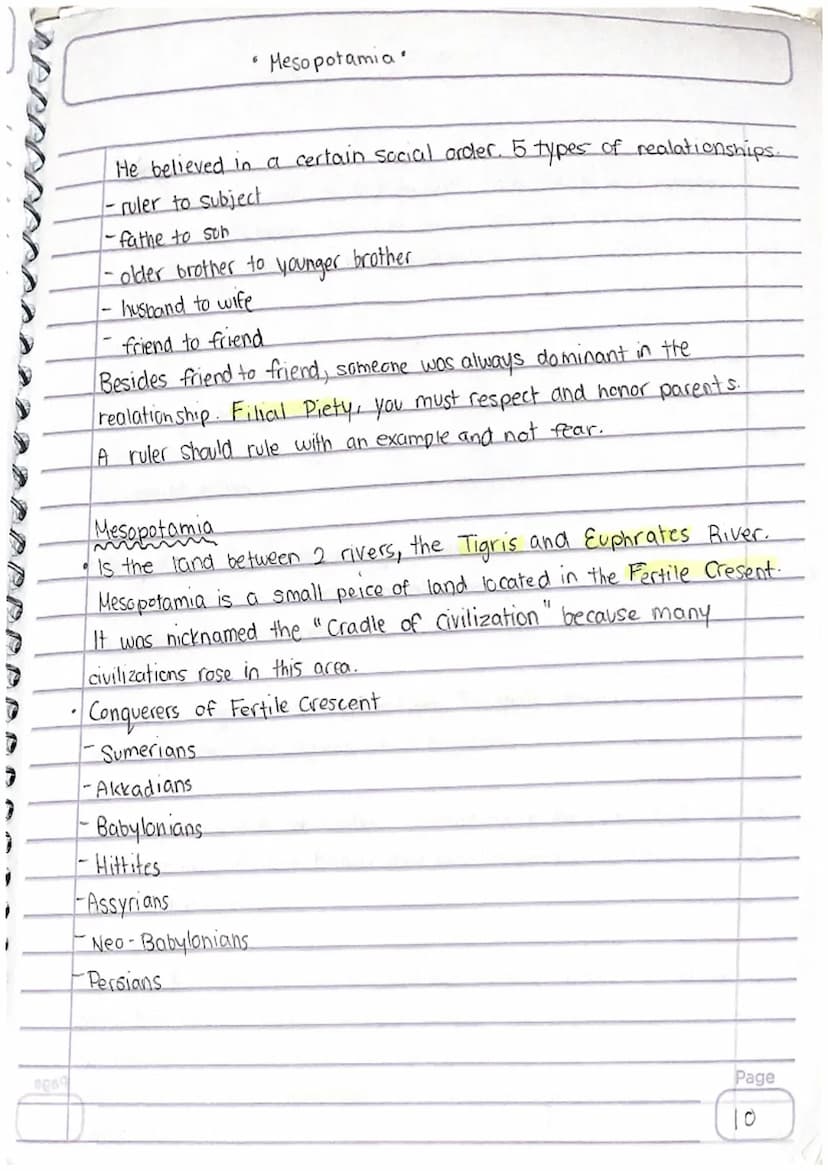 • Mesopotamia •
He believed in a certain social order. 5 types of realationships.
- ruler to subject
- fathe to son
- older brother to younger brother
- husband to wife
- friend to friend
Besides friend to friend, someone was always dominant in the
realationship. Filial Piety, you must respect and honor parents.
A ruler should rule with an example and not fear.
Mesopotamia
• Is the land between 2 rivers, the Tigris and Euphrates River.
Mesopotamia is a small peice of land located in the Fertile Cresent.
It was nicknamed the "Cradle of Civilization" because many
civilizations rose in this area.
• Conquerers of Fertile Crescent
- Sumerians
- Akkadians
- Babylonians
- Hittites
- Assyrians
- Neo-Babylonians
- Persians
Page
10